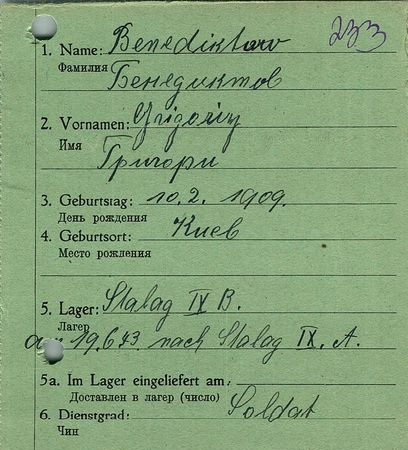 233
1. Name: Benediktow
Фамилия
Бенедиктов
2. Vornamen: Grigoriy
Имя
Григори
3. Geburtstag: 10.2.1909.
День рождения
4. Geburtsort: Киев
Место рождения
5. Lager: Stalag IV B.
Лагер
am 19.6.43 nach Stalag IX. A.
5a. Im Lager eingeliefert am:
Доставлен в лагер (число)
6. Dienstgrad: Soldat
Чин